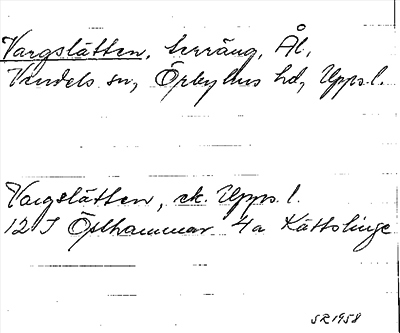 Vargslätten, terräng, Ål,
Vendels sn, Örbyhus hd, Upps. l.
Vargslätten, ek. Upps. l.
12 I Östhammar 4a Kättslinge
SR 1958